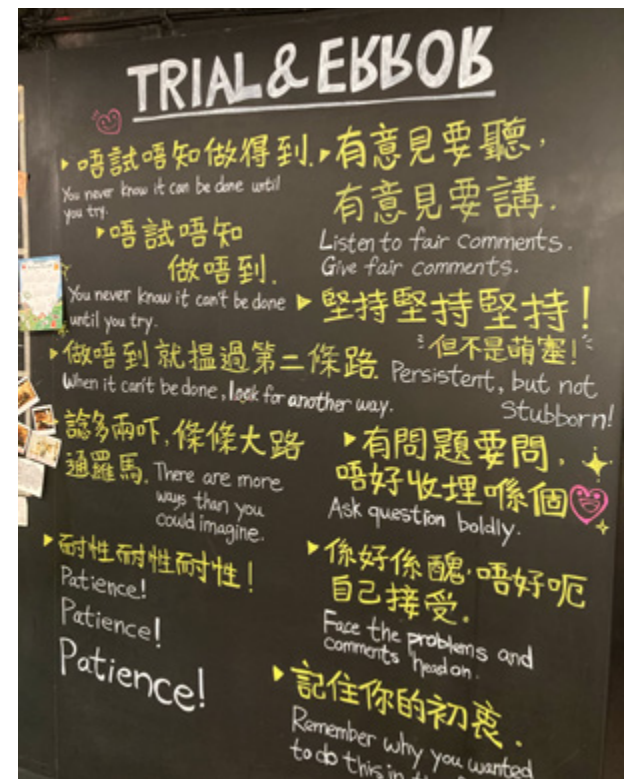 TRIAL & ERROR
唔試唔知做得到.
You never know it can be done until
you try.
唔試唔知
做唔到.
You never know it can't be done
until you try.
做唔到就搵過第二條路.
When it can't be done, look for another way.
諗多兩吓,條條大路
通羅馬.
There are more
ways than you
could imagine.
耐性耐性耐性!
Patience!
Patience!
Patience!
有意見要聽,
有意見要講.
Listen to fair comments.
Give fair comments.
堅持堅持堅持!
但不是萌塞!
Persistent, but not
Stubborn!
有問題要問,
唔好收埋喺個
Ask question boldly.
係好係醜,唔好呃
自己接受.
Face the problems and
comments head on.
記住你的初衷.
Remember why you wanted
to do this in